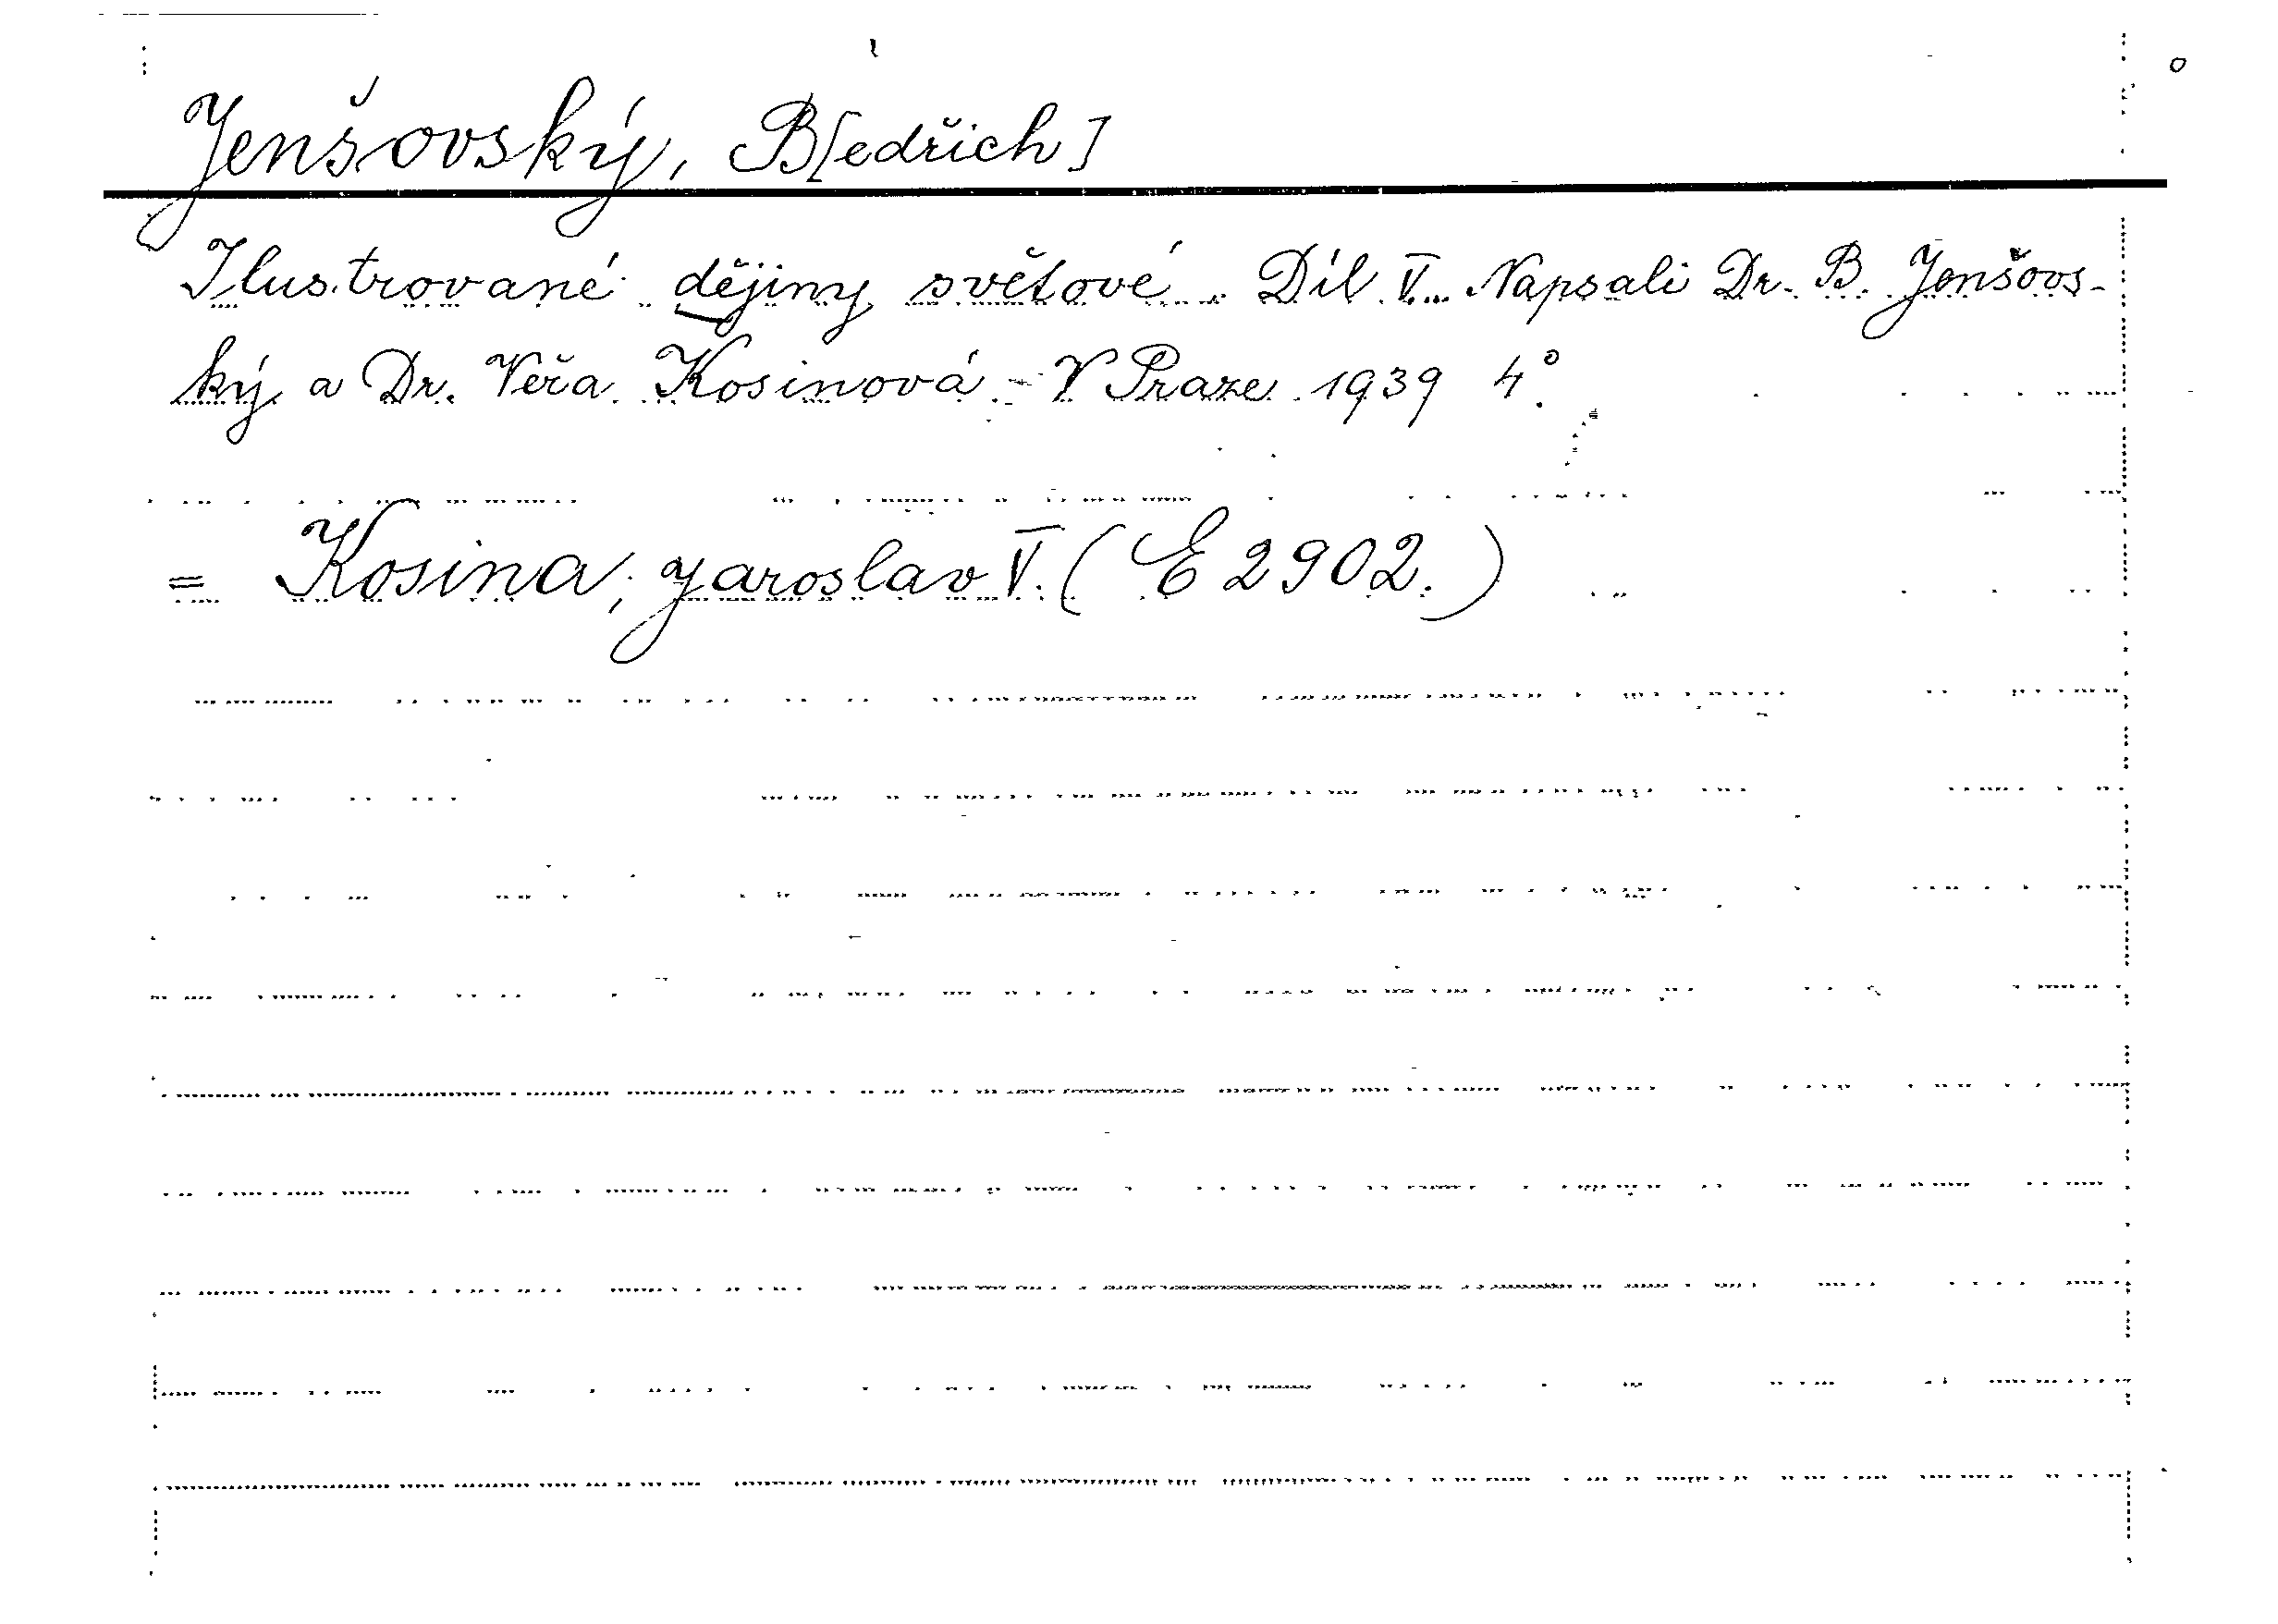 Jenšovský, B[edřich]
Ilustrované dějiny světové. Díl V. Napsali Dr. B. Jenšovs-
ký a Dr. Věra Kosinová. - V Praze 1939 4°.
= Kosina, Jaroslav V. (E 2902.)